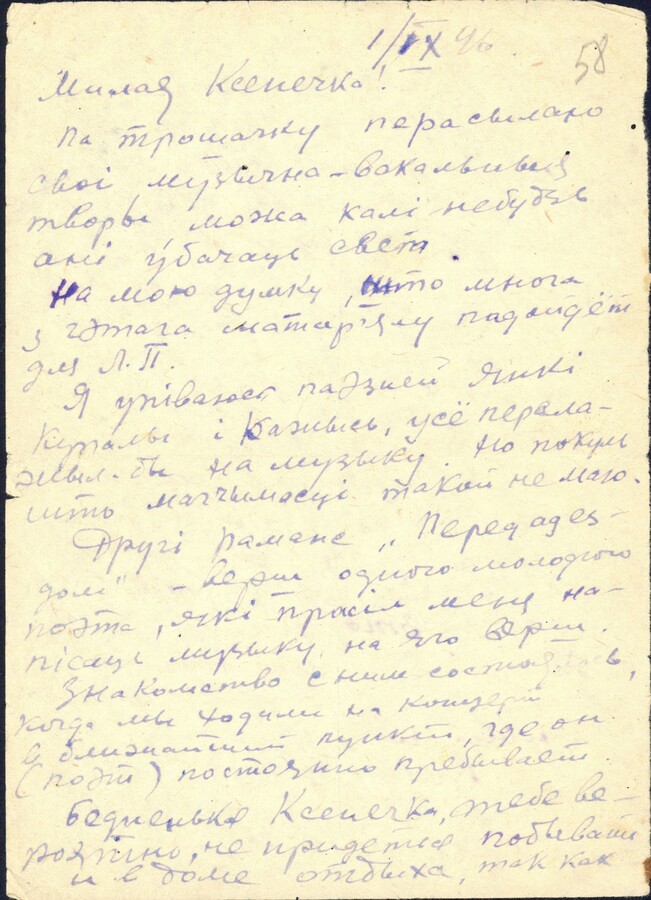 1/IX 46
58
Милая Ксенечка!
Па трошачку перасылаю
сваі музычна-вакальныя
творы можа калі небудзь
ані ўбачаць свет.
На мою думку, што многа
з гэтага матар'ялу падойдёт
для Л.П.
Я упіваюсь паэзией Янкі
Купалы і кажысь, усё перала-
жыл-бы на музыку. Но покуль
што магчымасці такой не маю.
Другі раманс „Перед отез-
дом" – верш одного молодого
поэта, які прасіл меня на-
пісаць музыку на яго верш.
Знакомство с ним состоялось,
когда мы ходили на концерт
в ближайший пункт, где он
(поэт) постоянно пребывает.
Бедненькая Ксенечка, тебе ве-
роятно, не придется побывать
и в доме отдыха, так как